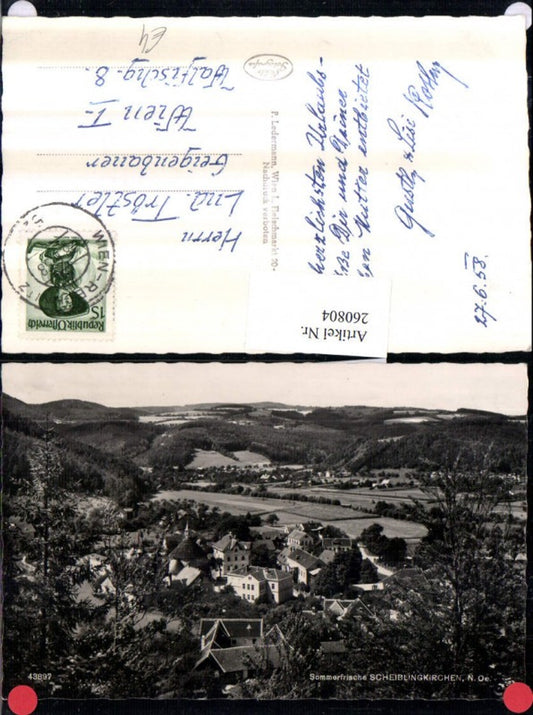 E4
Herrn
Lud. Tröstler
Geigenbauer
Wien I.
Walfischg. 8.
P. Ledermann, Wien I, Fleischmarkt 20
Nachdruck verboten
WIEN
Republik Österreich
1S
herzlichsten Urlaubs-
Dir und Deiner
Mutter entbietet
Gustl & Lisi
27.6.58.
Artikel Nr.
260804
43897
Sommerfrische SCHEIBLINGKIRCHEN, N. Oe.